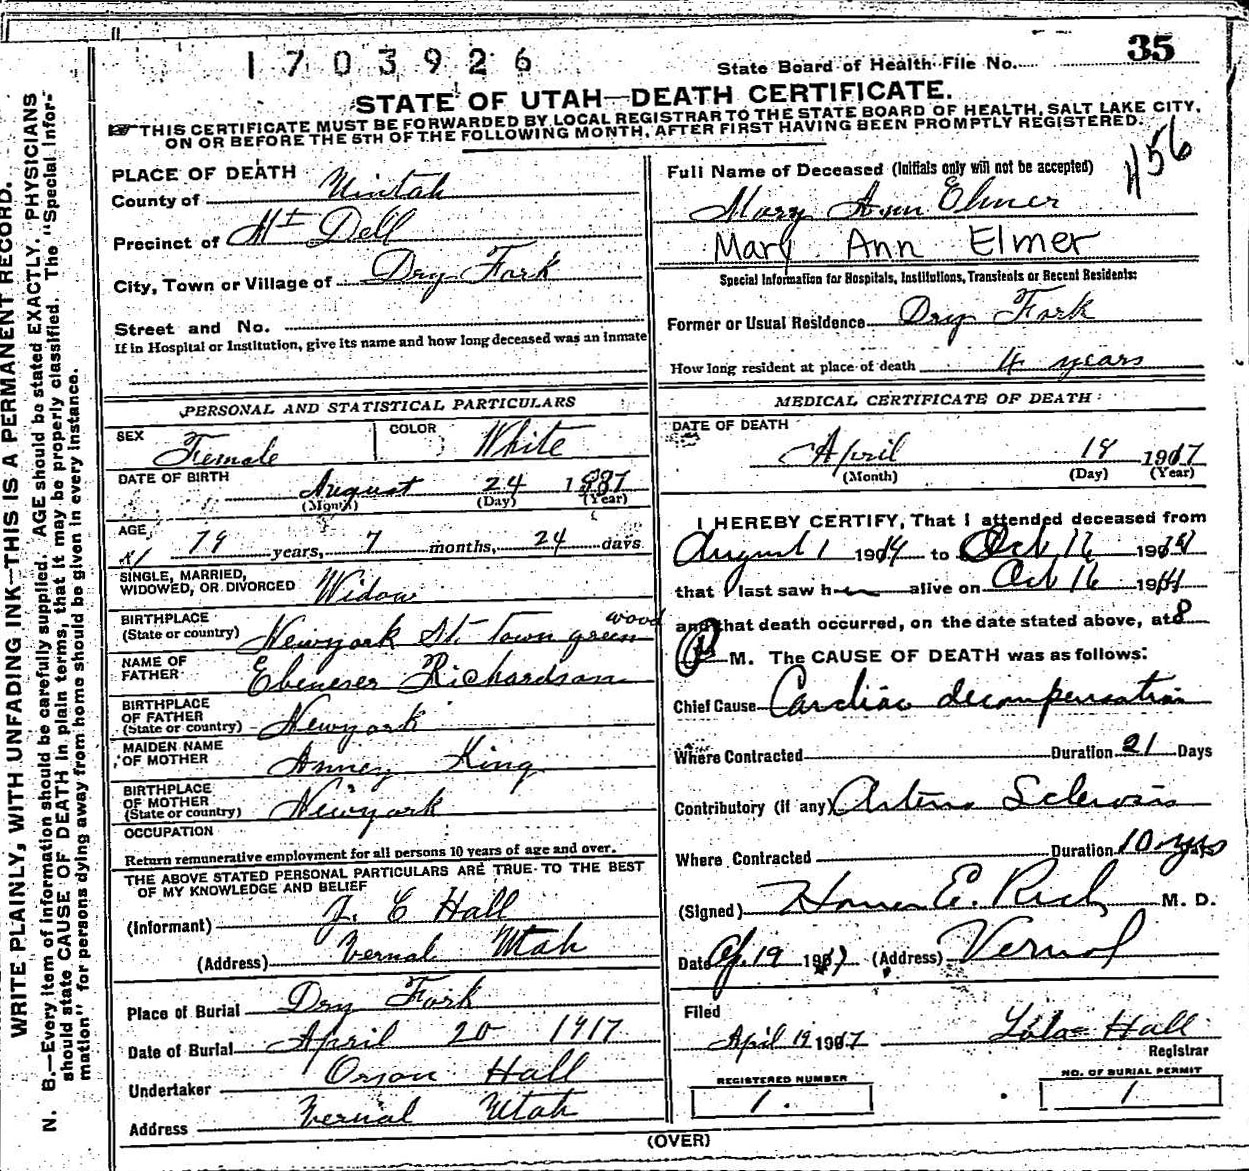 1703926
State Board of Health File No. 35
STATE OF UTAH—DEATH CERTIFICATE.
THIS CERTIFICATE MUST BE FORWARDED BY LOCAL REGISTRAR TO THE STATE BOARD OF HEALTH, SALT LAKE CITY,
ON OR BEFORE THE 5TH OF THE FOLLOWING MONTH, AFTER FIRST HAVING BEEN PROMPTLY REGISTERED.
1156
WRITE PLAINLY, WITH UNFADING INK—THIS IS A PERMANENT RECORD.
N. B.—Every item of information should be carefully supplied. AGE should be stated EXACTLY. PHYSICIANS
should state CAUSE OF DEATH in plain terms, that it may be properly classified. The "Special Infor-
mation" for persons dying away from home should be given in every instance.
PLACE OF DEATH
County of Uintah
Precinct of Mt Dell
City, Town or Village of Dry Fork
Street and No.
If in Hospital or Institution, give its name and how long deceased was an inmate
PERSONAL AND STATISTICAL PARTICULARS
SEX Female COLOR White
DATE OF BIRTH August 24
(Month) (Day) (Year)
AGE 79 years, 7 months, 24 days
SINGLE, MARRIED,
WIDOWED, OR DIVORCED Widow
BIRTHPLACE
(State or country) Newyork St. Town green wood
NAME OF
FATHER Ebeneser Richardson
BIRTHPLACE
OF FATHER
(State or country) Newyork
MAIDEN NAME
OF MOTHER Anney King
BIRTHPLACE
OF MOTHER
(State or country) Newyork
OCCUPATION
Return remunerative employment for all persons 10 years of age and over.
THE ABOVE STATED PERSONAL PARTICULARS ARE TRUE TO THE BEST
OF MY KNOWLEDGE AND BELIEF
(Informant) J. C Hall
(Address) Vernal Utah
Place of Burial Dry Fork
Date of Burial April 20 1917
Undertaker Orson Hall
Address Vernal Utah
Full Name of Deceased (Initials only will not be accepted)
Mary Ann Elmer
Mary Ann Elmer
Special Information for Hospitals, Institutions, Transients or Recent Residents:
Former or Usual Residence Dry Fork
How long resident at place of death 4 years
MEDICAL CERTIFICATE OF DEATH
DATE OF DEATH
April 18 1917
(Month) (Day) (Year)
I HEREBY CERTIFY, That I attended deceased from
August 1 1914 to Oct 16
that I last saw h alive on Oct 16
and that death occurred, on the date stated above, at 8
P M. The CAUSE OF DEATH was as follows:
Chief Cause Cardiac decompensation
Where Contracted Duration 21 Days
Contributory (if any) Arterio Sclerosis
Where Contracted Duration 10 yrs
(Signed) Homer E. Rich M. D.
Date Ap. 19 1917 (Address) Vernal
Filed
April 19 1917 Hall
Registrar
REGISTERED NUMBER
1.
NO. OF BURIAL PERMIT
1
(OVER)